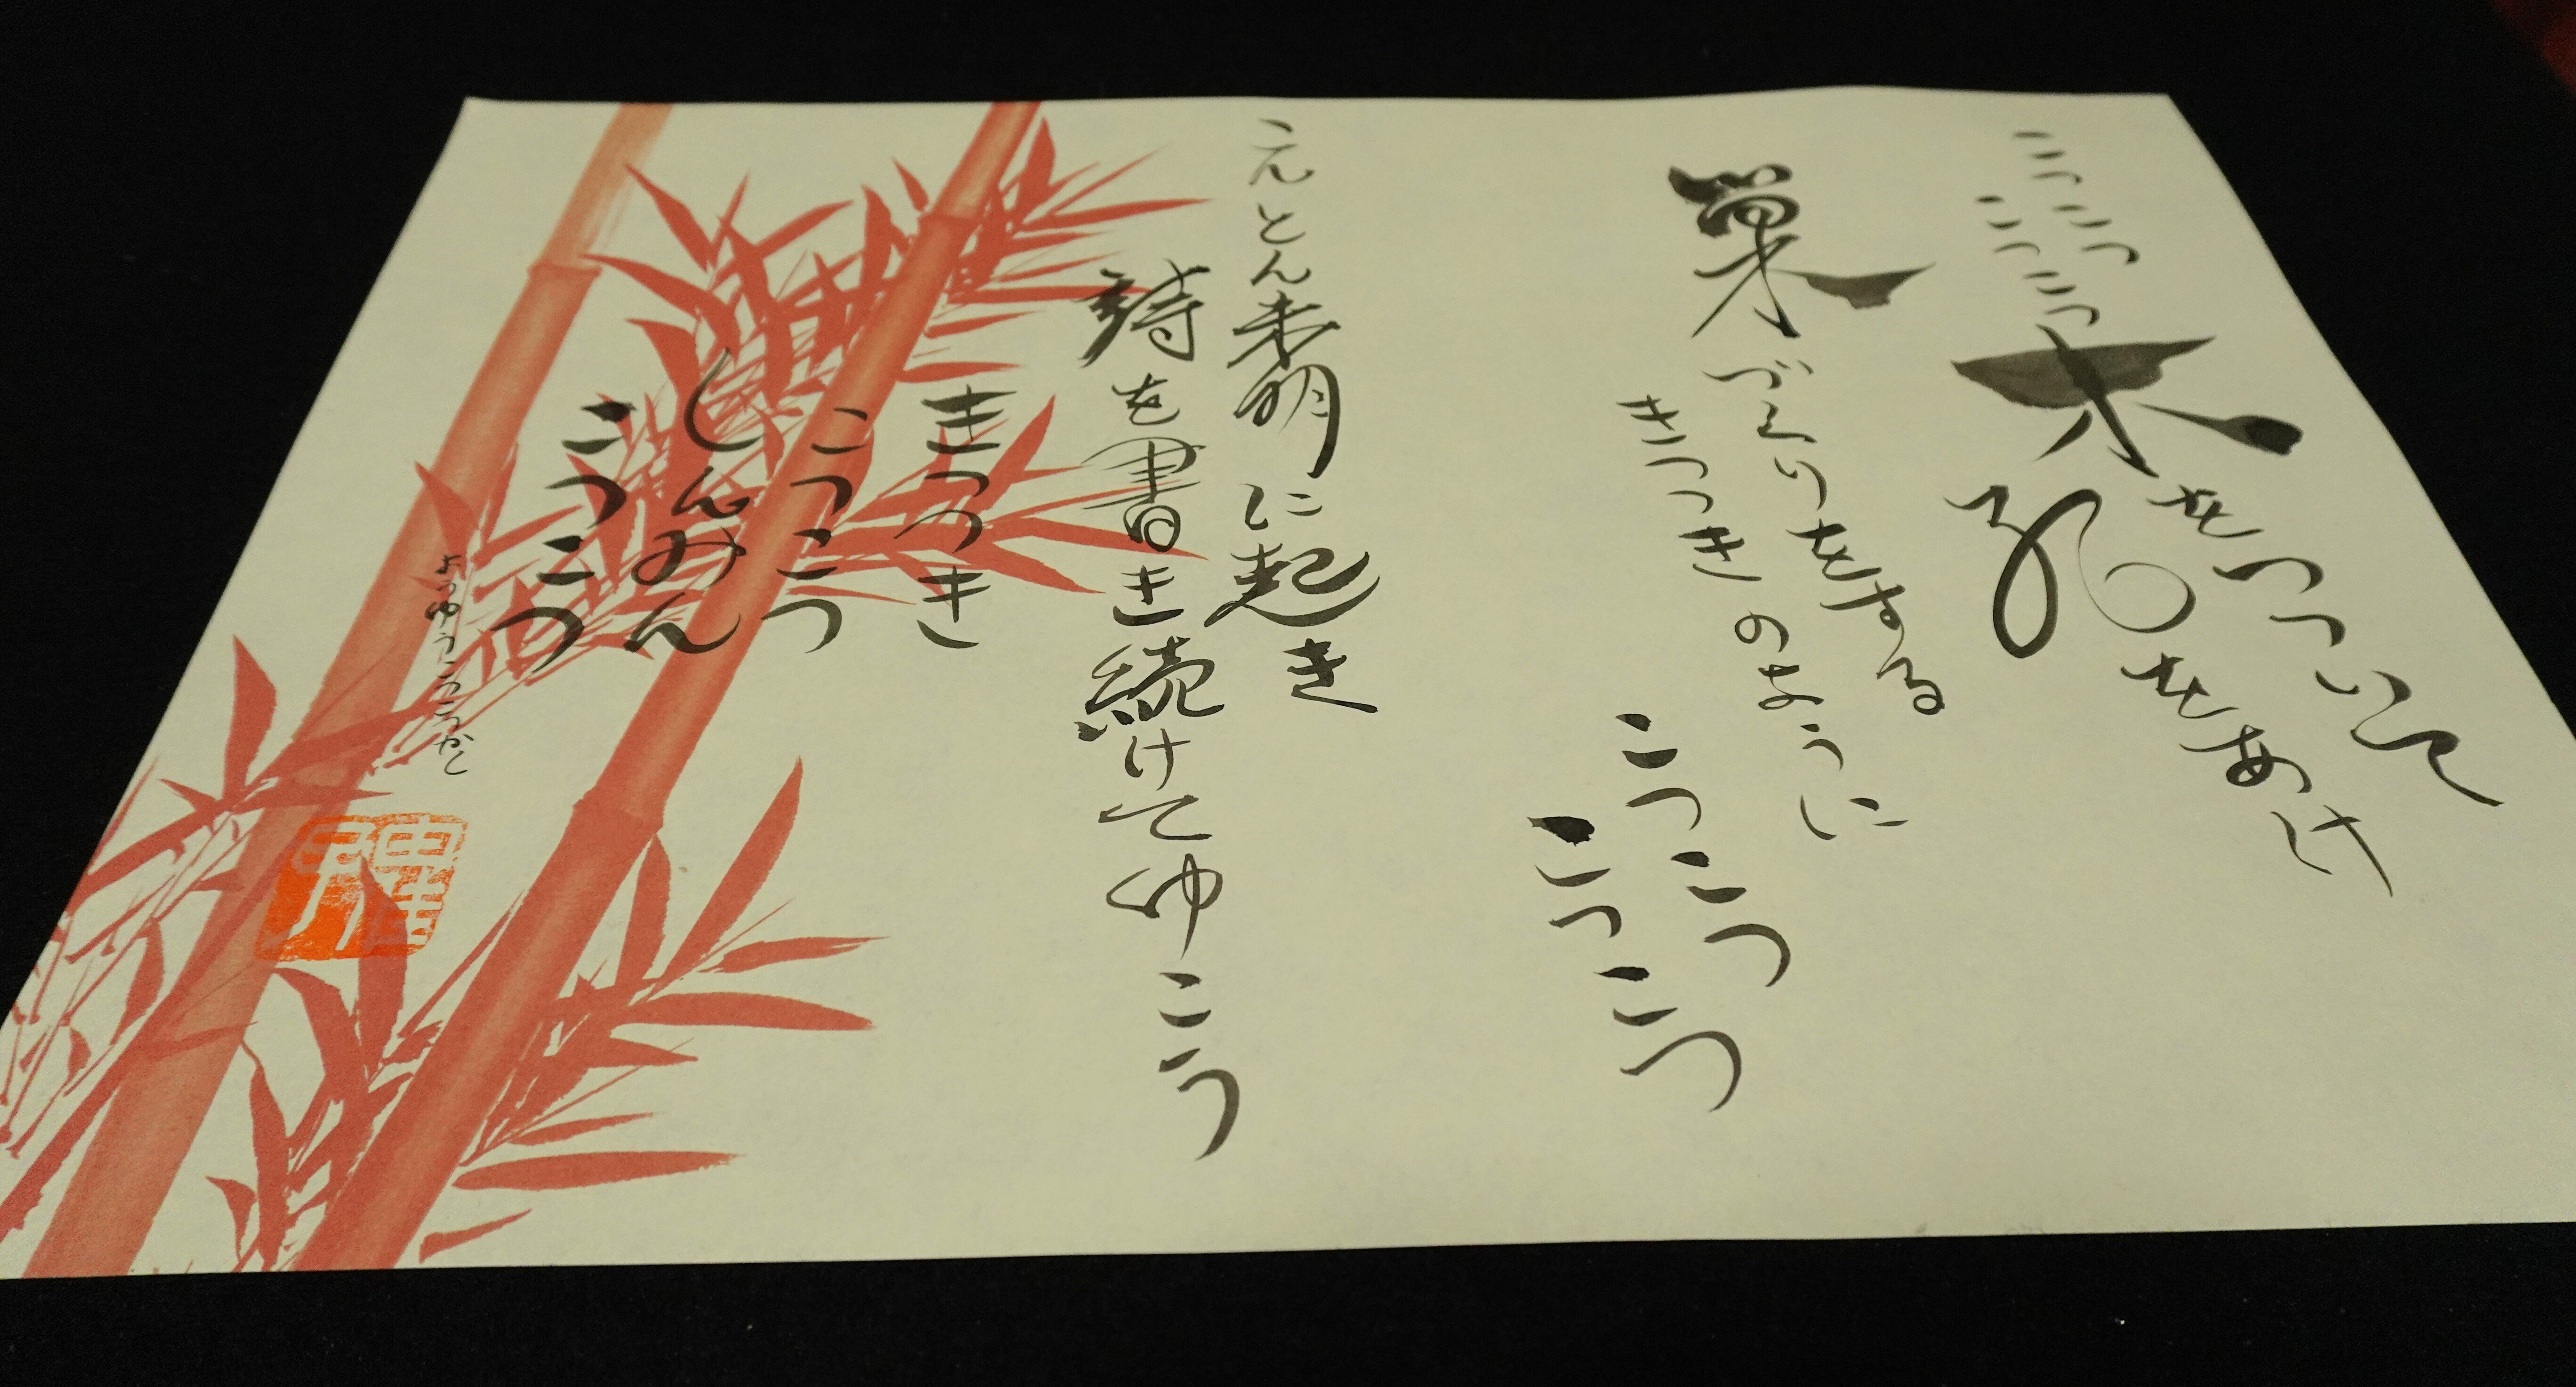 こつこつ
こつこつ
木をつついて
孔をあけ
巣づくりをする
きつつきのように
こつこつ
こつこつ
えとん未明に起き
詩を書き続けてゆこう
きつつき
こつこつ
しんみん
こつこつ